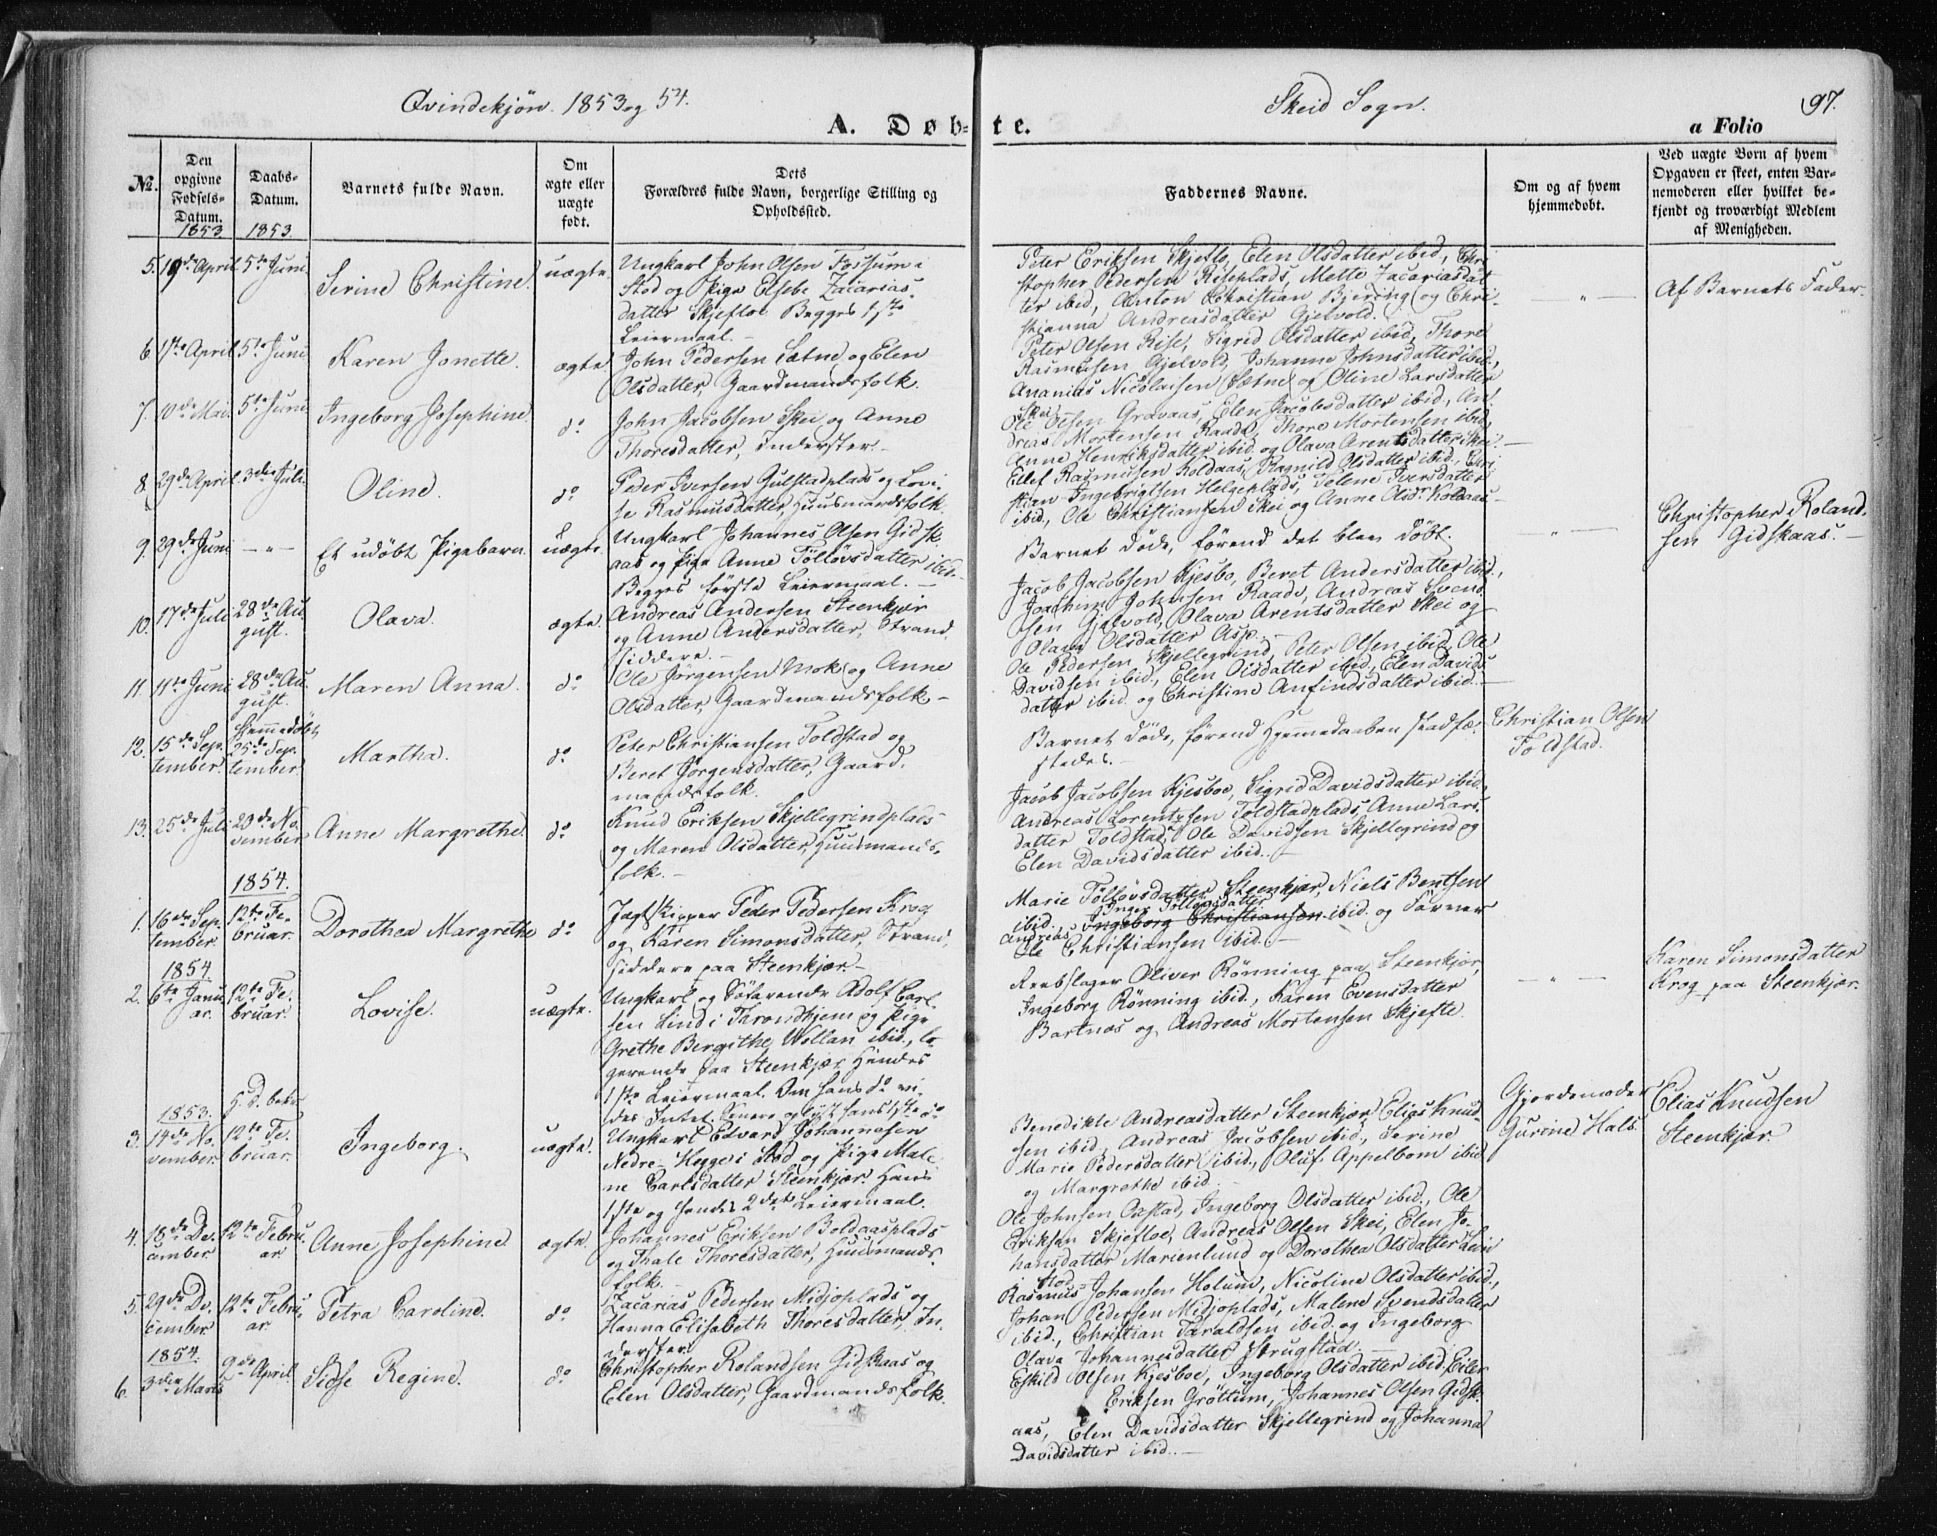 Qvindekjøn. 1853 og 54.
Skeid Sogn.
97.
A. Døb-
te.
a Folio
No.
Den opgivne Fødsels-Datum. 1853
Daabs-Datum. 1853.
Barnets fulde Navn.
Om ægte eller uægte født.
Dets Forældres fulde Navn, borgerlige Stilling og Opholdssted.
Faddernes Navne.
Om og af hvem hjemmedøbt.
Ved uægte Børn af hvem Opgaven er skeet, enten Barnemoderen eller hvilket bekjendt og troværdigt Medlem af Menigheden.
5. 19de April 5te Juni
Serine Christine.
uægte.
Ungkarl John Olsen Fossum i
Stod og Pige Elsebe Zacarias-
datter Skjefloe Begges 1ste
Leiermaal.
Peter Eriksen Skjefte, Elen Olsdatter ibid, Chri-
stopher Pedersen Riseplads, Mette Zacariasdat-
ter ibid, Anton Christian Bjering og Chri-
stianna Andreasdatter Gjelvold.
Af Barnets Fader.
6. 17te April 5te Juni
Karen Jonette.
ægte
John Pedersen Sætne og Elen
Olsdatter, Gaardmandsfolk.
Peter Olsen Rise, Sigrid Olsdatter ibid, Thore
Rasmusen Gjelvold, Johanne Johnsdatter ibid.,
Ananias Nicolaisen Sætne og Oline Larsdatter
Skei.
7. 10de Mai. 5te Juni
Ingeborg Josephine.
do
John Jacobsen Skei og Anne
Thoresdatter, Inderster.
Ole Olsen Gravaas, Elen Jacobsdatter ibid, An-
dreas Mortensen Raade, Thore Mortensen ibid,
Anne Henriksdatter ibid. og Olava Arentsdatter Skei.
8. 29de April 3die Juli
Oline.
do
Peder Iversen Gulstadplads og Lovi-
se Rasmusdatter, Huusmandsfolk.
Ellef Rasmusen Koldaas, Ragnild Olsdatter ibid., Chri-
stian Ingebrigtsen Helgeplads, Telene Iversdatter
ibid, Ole Christiansen Skei og Anne Olsdr Koldaas
9. 29de Juni
Et udøbt Pigebarn.
uægte.
Ungkarl Johannes Olsen Gidsk-
aas og Pige Anne Tollovsdatter ibid.
Begges første Leiermaal.
Barnet døde, førend det blev døbt.
Christopher Roland-
sen Gidskaas.
10. 17de Juli 28de Au-
gust.
Olava.
ægte.
Andreas Andersen Steenkjær
og Anne Andersdatter, Strand-
siddere.
Jacob Jacobsen Kjesbo, Beret Andersdatter ibid.,
Joachim Johnsen Raade, Andreas Svend-
sen Gjelvold, Olava Arentsdatter Skei og
Olava Olsdatter Asp.
11 11te Juni 28de Au-
gust.
Maren Anna.
do
Ole Jørgensen Mok og Anne
Olsdatter, Gaardmandsfolk
Ole Pedersen Skjellegrind, Peter Olsen ibid, Ole
Davidsen ibid, Elen Olsdatter ibid, Elen Davids-
datter ibid og Christine Anfindsdatter ibid.
12. 15de Sep-
tember.
Hjemmedøbt
25de Sep-
tember.
Martha.
do
Peter Christiansen Foldstad og
Beret Jørgensdatter, Gaard-
mandsfolk.
Barnet døde, førend Hjemmedaaben stadfæ-
stedes.
Christian Olsen
Foldstad.
13. 25de Juli 20de No-
vember
Anne Margrethe.
do
Knud Eriksen Skjellegrindplads
og Maren Olsdatter, Huusmands-
folk.
Jacob Jacobsen Kjesboe, Sigrid Davidsdatter ibid.
Andreas Lorentzsen Foldstadplads, Anne Lars-
datter Foldstad, Ole Davidsen Skjellegrind og
Elen Davidsdatter ibid.
1854.
1. 16de Sep-
tember. 12te Fe-
bruar.
Dorothea Margrethe
do
Jægtskipper Peder Pedersen Krog
og Karen Simonsdatter, Strand-
siddere paa Steenkjær.
Marie Tollovsdatter Steenkjær, Niels Bentsen
Inger Tollovsdatter
ibid., Ingeborg Christiansen ibid. og Farver
Andreas
Ole Christiansen ibid.
1854.
2. 6te Janu-
ar. 12te Fe-
bruar.
Lovise.
uægte.
Ungkarl og Søfarende Adolf Carl-
sen Lind i Throndhjem og Pige
Grethe Bergithe Wollan ibid., lo-
gerende paa Steenkjær Hendes
1ste Leiermaal. Om hans do vi-
des Intet.
Reebslager Oliver Rønning paa Steenkjær,
Ingeborg Rønning ibid., Karen Evensdatter
Bartnæs og Andreas Mortensen Skjefte.
Karen Simonsdatter
Krog paa Steenkjær.
1853.
H. D. bekr.
3. 14de No-
vember. 12te Fe-
bruar.
Ingeborg.
uægte.
Ungkarl Edvard Johannesen
Nedre Hegge i Stod og Pige Male-
ne Carlsdatter Steenkjær. Hans
1ste og hendes 2det Leiermaal.
Benedikte Andreasdatter Steenkjær, Elias Knud-
sen ibid, Andreas Jacobsen ibid, Serine
Marie Pedersdatter ibid., Oluf Appelbom ibid
og Margrethe ibid.
Gjordemoder
Gurine Hals.
Elias Knudsen
Steenkjær.
4. 18de De-
cember 12te Febru-
ar.
Anne Josephine.
ægte.
Johannes Eriksen Boldaasplads
og Thale Thoresdatter, Huusmands-
folk.
Ole Johnsen Oxstad, Ingeborg Olsdatter ibid., Ole
Eriksen Skjefloe, Andreas Olsen Skei, Elen Jo-
hansdatter Marienlund og Dorothea Olsdatter
Stod.
5. 29de De-
cember 12te Febru-
ar.
Petra Caroline.
do
Zacarias Pedersen Midjoplads og
Hanna Elisabeth Thoresdatter, In-
derster.
Rasmus Johansen Holum, Nicoline Olsdatter ibid.,
Johan Pedersen Midjoplads, Malene Svendsdatter
ibid., Christian Taraldsen ibid. og Ingeborg
Olava Johannesdatter Strugstad.
1854.
6. 3die Marts 9de April
Sidse Regine.
do
Christopher Rolandsen Gidskaas og
Elen Olsdatter, Gaardmandsfolk.
Eskild Olsen Kjesboe, Ingeborg Olsdatter ibid. Eiler
Eriksen Grøttum, Johannes Olsen Gidsk-
aas, Elen Davidsdatter Skjellegrind og Johanna
Davidsdatter ibid.